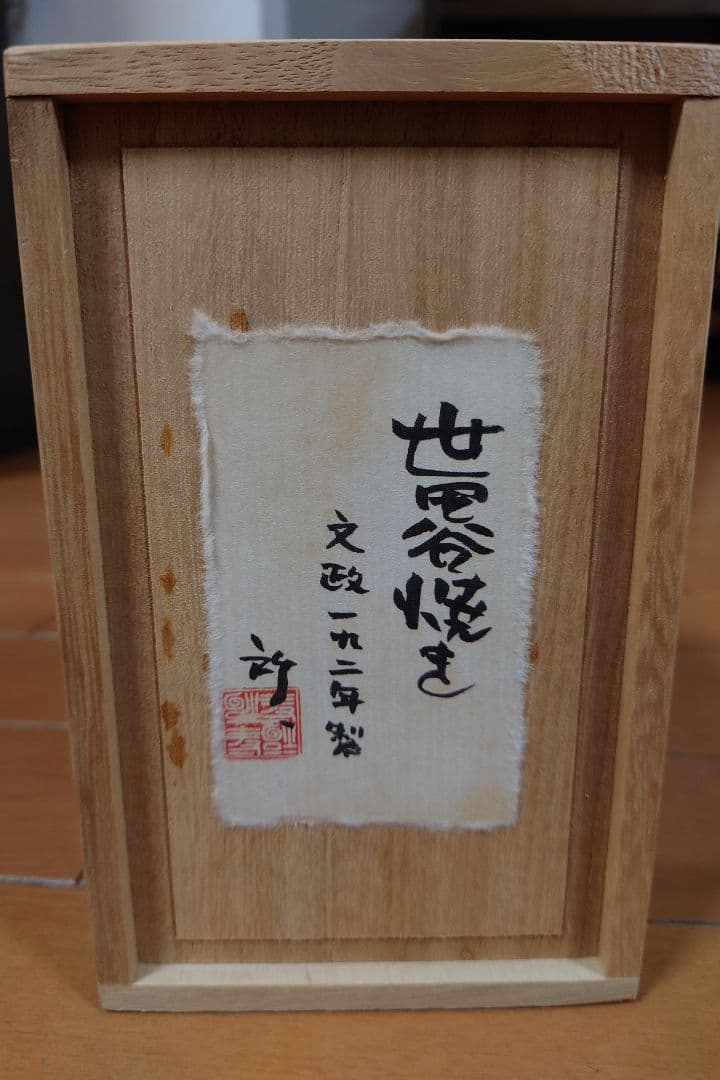 世田谷焼き
文政一九二年製